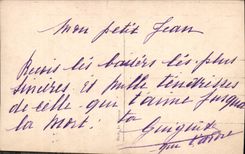 Mon petit Jean
Reçois les baisers les plus
sincères et mille tendresses
de celle qui t'aime jusqu'a
la mort! ta
qui t'adore